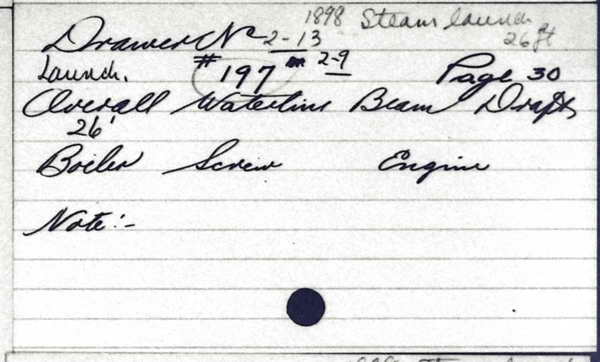 1898 Steam launch
26 ft
Drawer No 2-13
Launch. #197 on 2-9 Page 30
Overall Waterline Beam Draft
26'
Boiler Screw Engine
Note:-